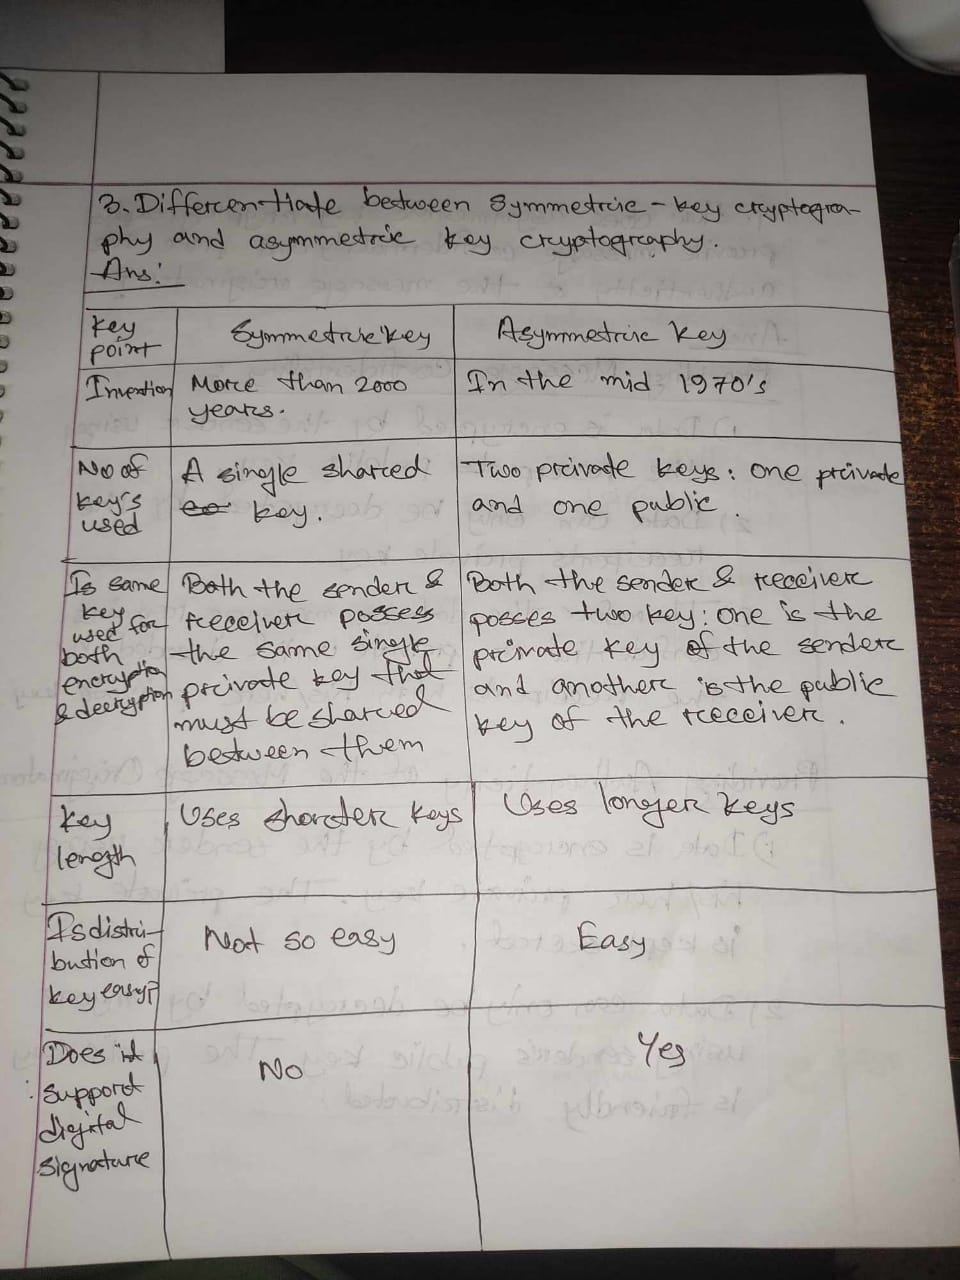 3. Differentiate between Symmetric-key cryptogra-
phy and asymmetric key cryptography.
Ans:
Key
point
Symmetric key
Asymmetric Key
Invention
More than 2000
years.
In the mid 1970's
No of
key's
used
A single shared
key.
Two private keys: one private
and one public.
Is same
key
used for
both
encryption
& decryption
Both the sender &
receiver possess
the same single
private key that
must be shared
between them
Both the sender & receiver
posses two key: one is the
private key of the sender
and another is the public
key of the receiver.
Key
length
Uses shorter keys
Uses longer keys
Is distri-
bution of
key easy?
Not so easy
Easy
Does it
support
digital
signature
No
Yes